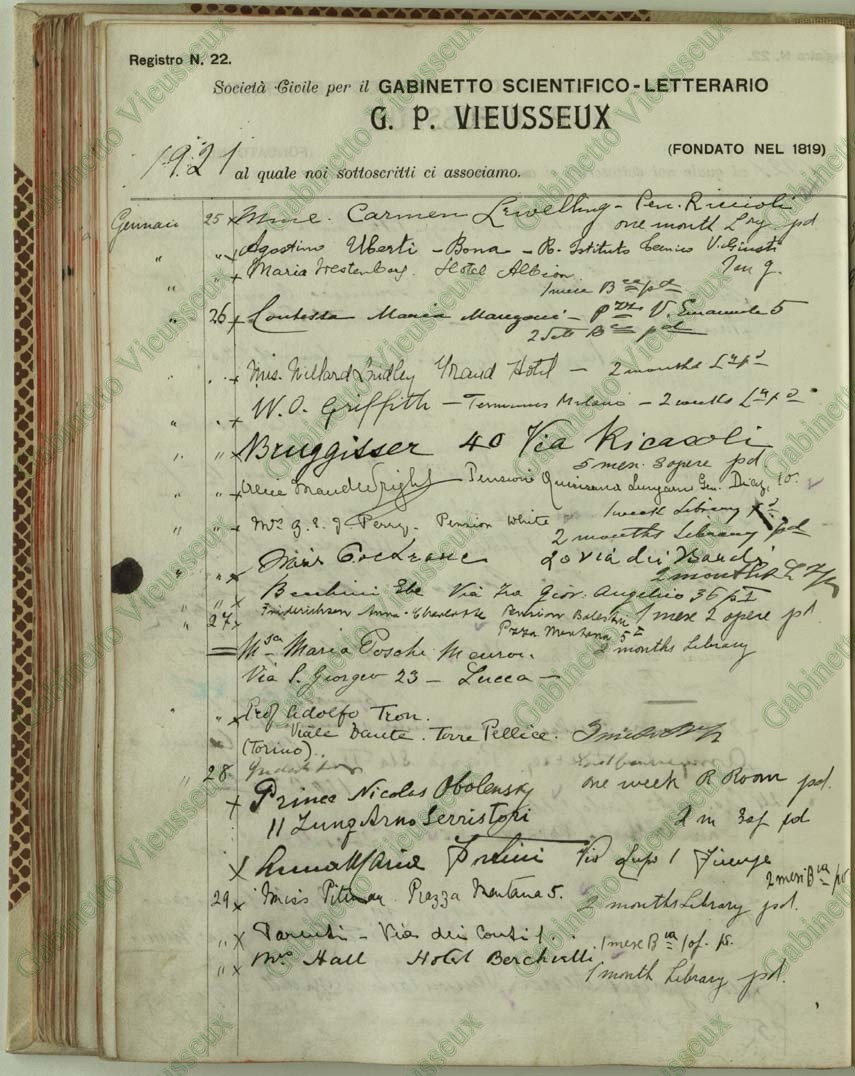 Registro N. 22.
Società Civile per il GABINETTO SCIENTIFICO-LETTERARIO
G. P. VIEUSSEUX
(FONDATO NEL 1819)
1921 al quale noi sottoscritti ci associamo.
Gennaio 25 x Mme. Carmen Lewelling - Pen. Riccioli
one month Lry. pd
" " x Agostino Uberti - Bona - R. Istituto Tecnico V. Giusti
" " + Maria Westenberg. Hotel Albion. 1 m g.
1 mese Bca pd
" 26 + Contessa Maria Mangani - Pzza V. Emanuele 5
2 Bca pd
" " + Mrs. Willard Lindley Grand Hotel - 2 months Lry pd
" " + W. O. Griffith - Terminus Milano - 2 weeks Lry pd
" " x Bruggisser 40 Via Ricasoli
5 mesi 3 opere pd.
" " x Alice Maud Wright Pension Quisisana Lungarno Gen. Diaz, 10.
1 week Library pd
" " x Mrs G. E. J. Perry. Pension White
2 months Library pd
" " x Miss Cochrane 20 via dei Bardi
2 months L
" " x Ebe Via Fra Giov. Angelico 36 p I
" 27 x Friderichsen Anna-Charlotte Pension Balestri 1 mese 2 opere pd
Pzza Mentana 5
= Msa Maria Poschi Meuron. 2 months Library
Via S. Giorgio 23 - Lucca -
" " x Prof. Adolfo Tron.
Viale Dante. Torre Pellice.
(Torino).
" 28
+ Prince Nicolas Obolensky one week R Room pd.
11 Lung Arno Serristori 2 m 3 of pd
x Anna Maria Via Lupo 1 Firenze
2 mesi Bca pd
29 x Miss Pittman Piazza Mentana 5. 2 months Library pd.
" x Parenti - Via dei Conti 1. 1 mese Bca 1 of. pd.
" x Mrs Hall Hotel Berchielli
1 month Library pd.